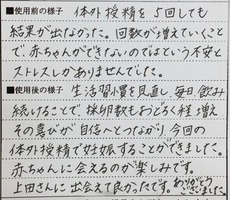 ■使用前の様子 体外授精を5回しても
結果が出なかった。回数が増えていくこと
で、赤ちゃんができないのではという不安と
ストレスしかありませんでした。
■使用後の様子 生活習慣を見直し毎日飲み
続けることで、採卵数もおどろく程増え
その喜びが自信へとつながり、今回の
体外授精で妊娠することができました。
赤ちゃんに会えるのが楽しみです。
上田さんに出会えて良かったです。ありがとう
ございました。